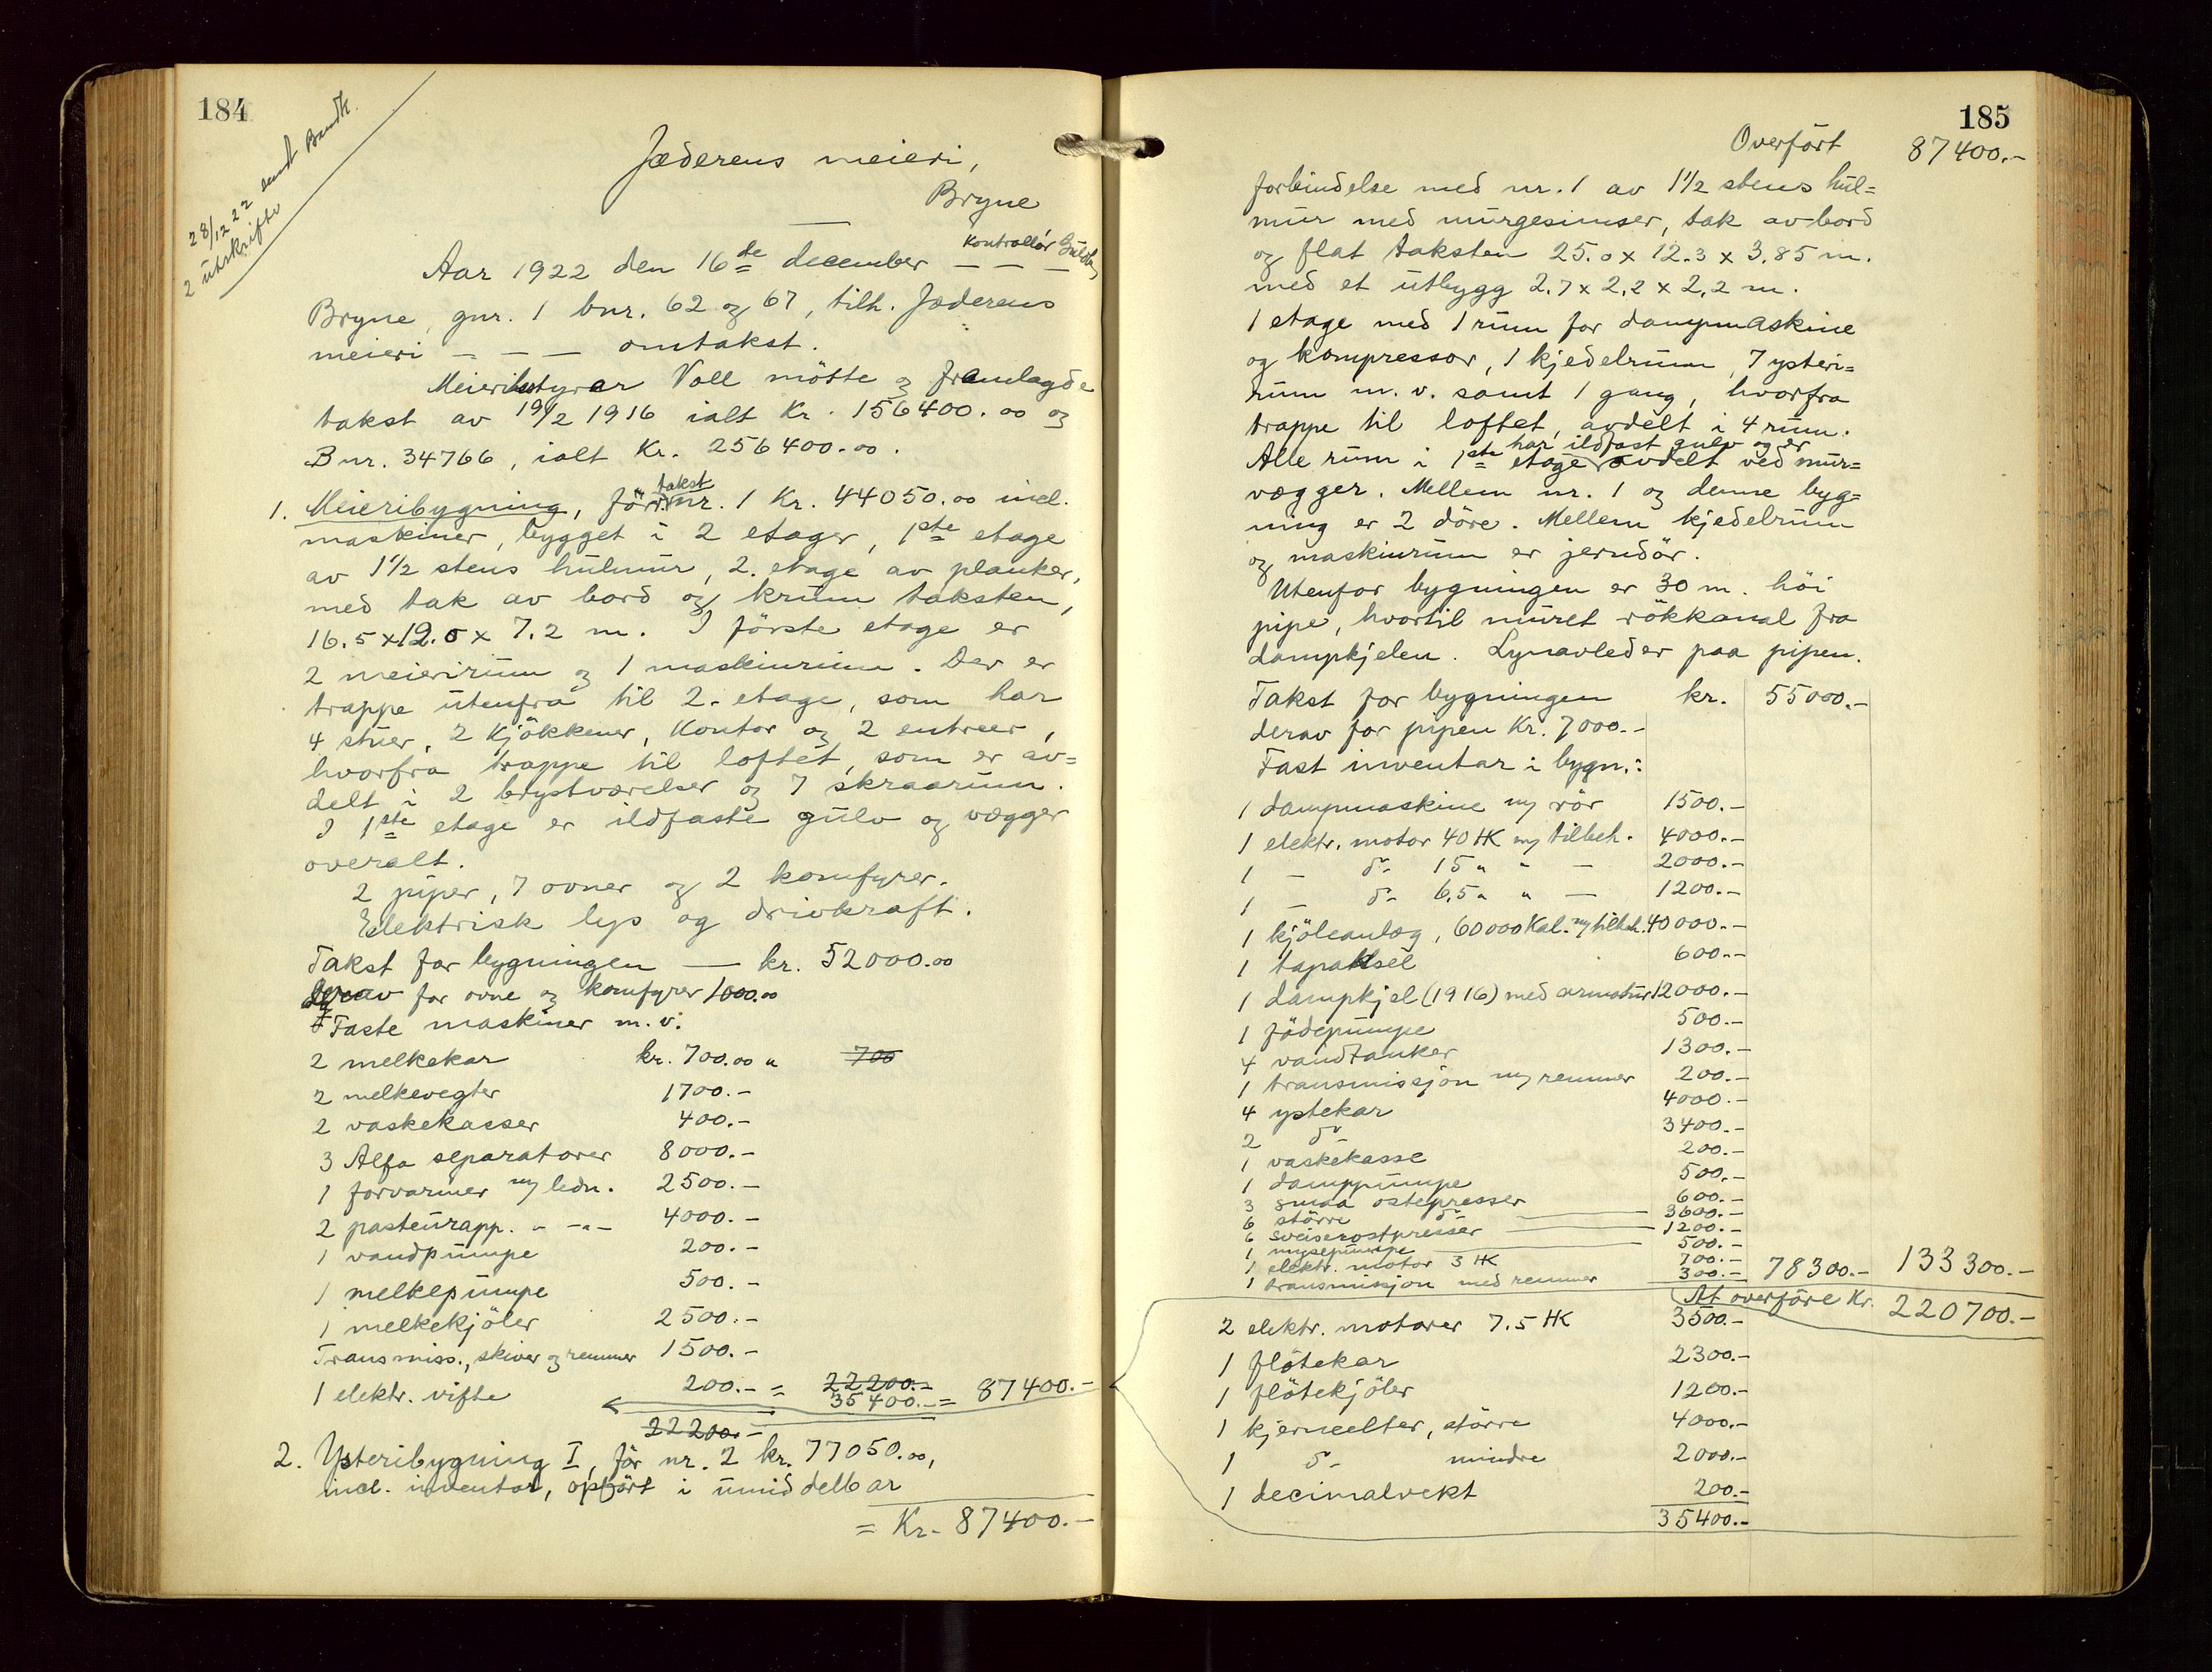 184
28/12 22 sendt Brandk.
2 utskrifter
Jæderens meieri,
Bryne
Aar 1922 den 16de december — — — Kontrollör
Bryne, gnr. 1 bnr. 62 og 67, tilh. Jæderens
meieri — — — omtakst.
Meieribestyrar Voll mötte og framlagde
takst av 19/2 1916 ialt Kr. 156400.00 og
B nr. 34766, ialt Kr. 256400.00.
1. Meieribygning, för takst nr. 1 Kr. 44050.00 incl.
maskiner, bygget i 2 etager, 1ste etage
av 1 1/2 stens hulmur, 2. etage av planker,
med tak av bord og krum taksten,
16.5 x 12.0 x 7.2 m. I förste etage er
2 meierirum og 1 maskinrum. Der er
trappe utenfra til 2. etage, som har
4 stuer, 2 kjökkener, kontor og 2 entreer,
hvorfra trappe til loftet, som er av=
delt i 2 brystværelser og 7 skraarum.
I 1ste etage er ildfaste gulv og vægger
overalt.
2 piper, 7 ovner og 2 komfyrer.
Elektrisk lys og drivkraft.
Takst for bygningen — kr. 52000.00
derav for ovne og komfyrer 1000.00
Faste maskiner m.v.
2 melkekar kr. 700.00 " 700
2 melkevegter 1700.-
2 vaskekasser 400.-
3 Alfa separatorer 8000.-
1 forvarmer m/ ledn. 2500.-
2 pasteurapp. " -"- 4000.-
1 vandpumpe 200.-
1 melkepumpe 500.-
1 melkekjöler 2500.-
Transmiss., skiver og remmer 1500.-
1 elektr. vifte 200.- = 22200.-
35400.- = 87400.-
22200.-
2. Ysteribygning I, för nr. 2 kr. 77050.00,
incl. inventar, opfört i umiddelbar
= Kr. 87400.-
185
Overfört 87400.-
forbindelse med nr. 1 av 1 1/2 stens hul=
mur med murgesimser, tak av bord
og flat taksten 25.0 x 12.3 x 3.85 m.
med et utbygg 2.7 x 2.2 x 2.2 m.
1 etage med 1 rum for dampmaskine
og kompressor, 1 kjedelrum, 7 ysteri=
rum m.v. samt 1 gang, hvorfra
trappe til loftet, avdelt i 4 rum.
Alle rum i 1ste etage har ildfast gulv og er avdelt ved mur=
vægger. Mellem nr. 1 og denne byg=
ning er 2 döre. Mellem kjedelrum
og maskinrum er jerndör.
Utenfor bygningen er 30 m. höi
pipe, hvortil muret rökkanal fra
dampkjelen. Lynavleder paa pipen.
Takst for bygningen kr. 55000.-
derav for pipen Kr. 7000.-
Fast inventar i bygn.:
1 dampmaskine m/ rör 1500.-
1 elektr. motor 40 HK m/ tilbeh. 4000.-
1 — do 15 " " — 2000.-
1 — do 6,5 " " — 1200.-
1 kjöleanlæg, 60000 Kal. m/ tilbeh. 40000.-
1 tapaksel 600.-
1 dampkjel (1916) med armatur 12000.-
1 födepumpe 500.-
4 vandtanker 1300.-
1 transmissjon m/ remmer 200.-
4 ystekar 4000.-
2 do 3400.-
1 vaskekasse 200.-
1 damppumpe 500.-
3 smaa ostepresser 600.-
6 större do 3600.-
6 sveiserostpresser 1200.-
1 mysepumpe 500.-
1 elektr. motor 3 HK 700.-
1 transmissjon med remmer 300.- 78300.- 133300.-
At overföre Kr. 220700.-
2 elektr. motorer 7.5 HK 3500.-
1 flötekar 2300.-
1 flötekjöler 1200.-
1 kjerneelter, större 4000.-
1 do mindre 2000.-
1 decimalvekt 200.-
35400.-